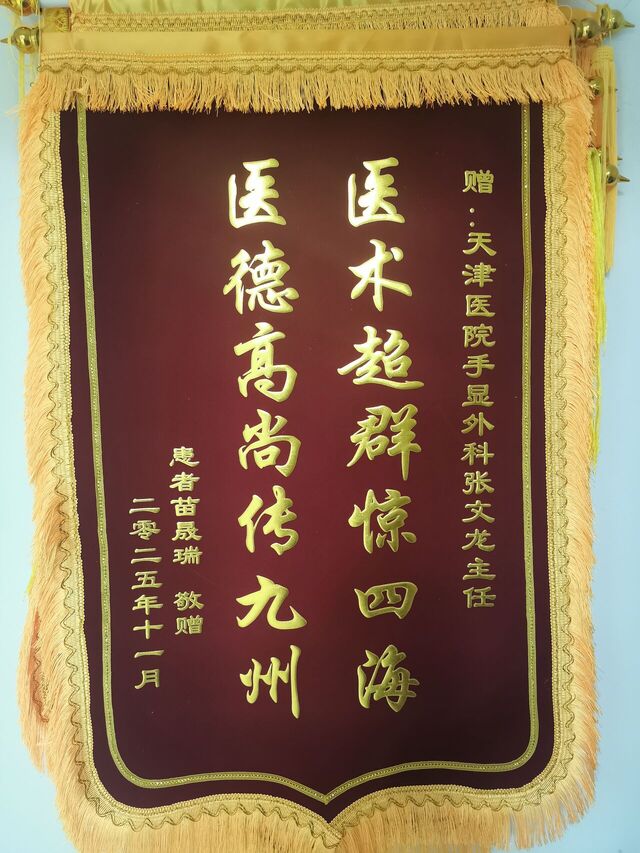 赠:天津医院手显外科张文龙主任
医术超群惊四海
医德高尚传九州
患者苗晟瑞 敬赠
二零二五年十一月